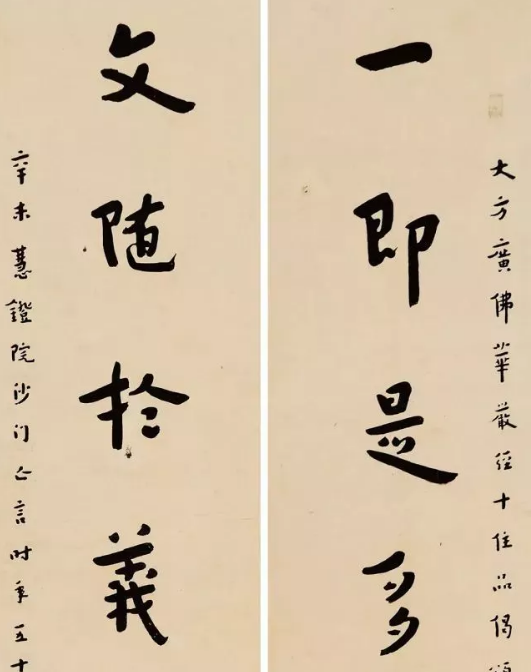 大方廣佛華嚴經十住品偈
一即是多
文随於義
辛未慧鐙院沙门亡言时年五十